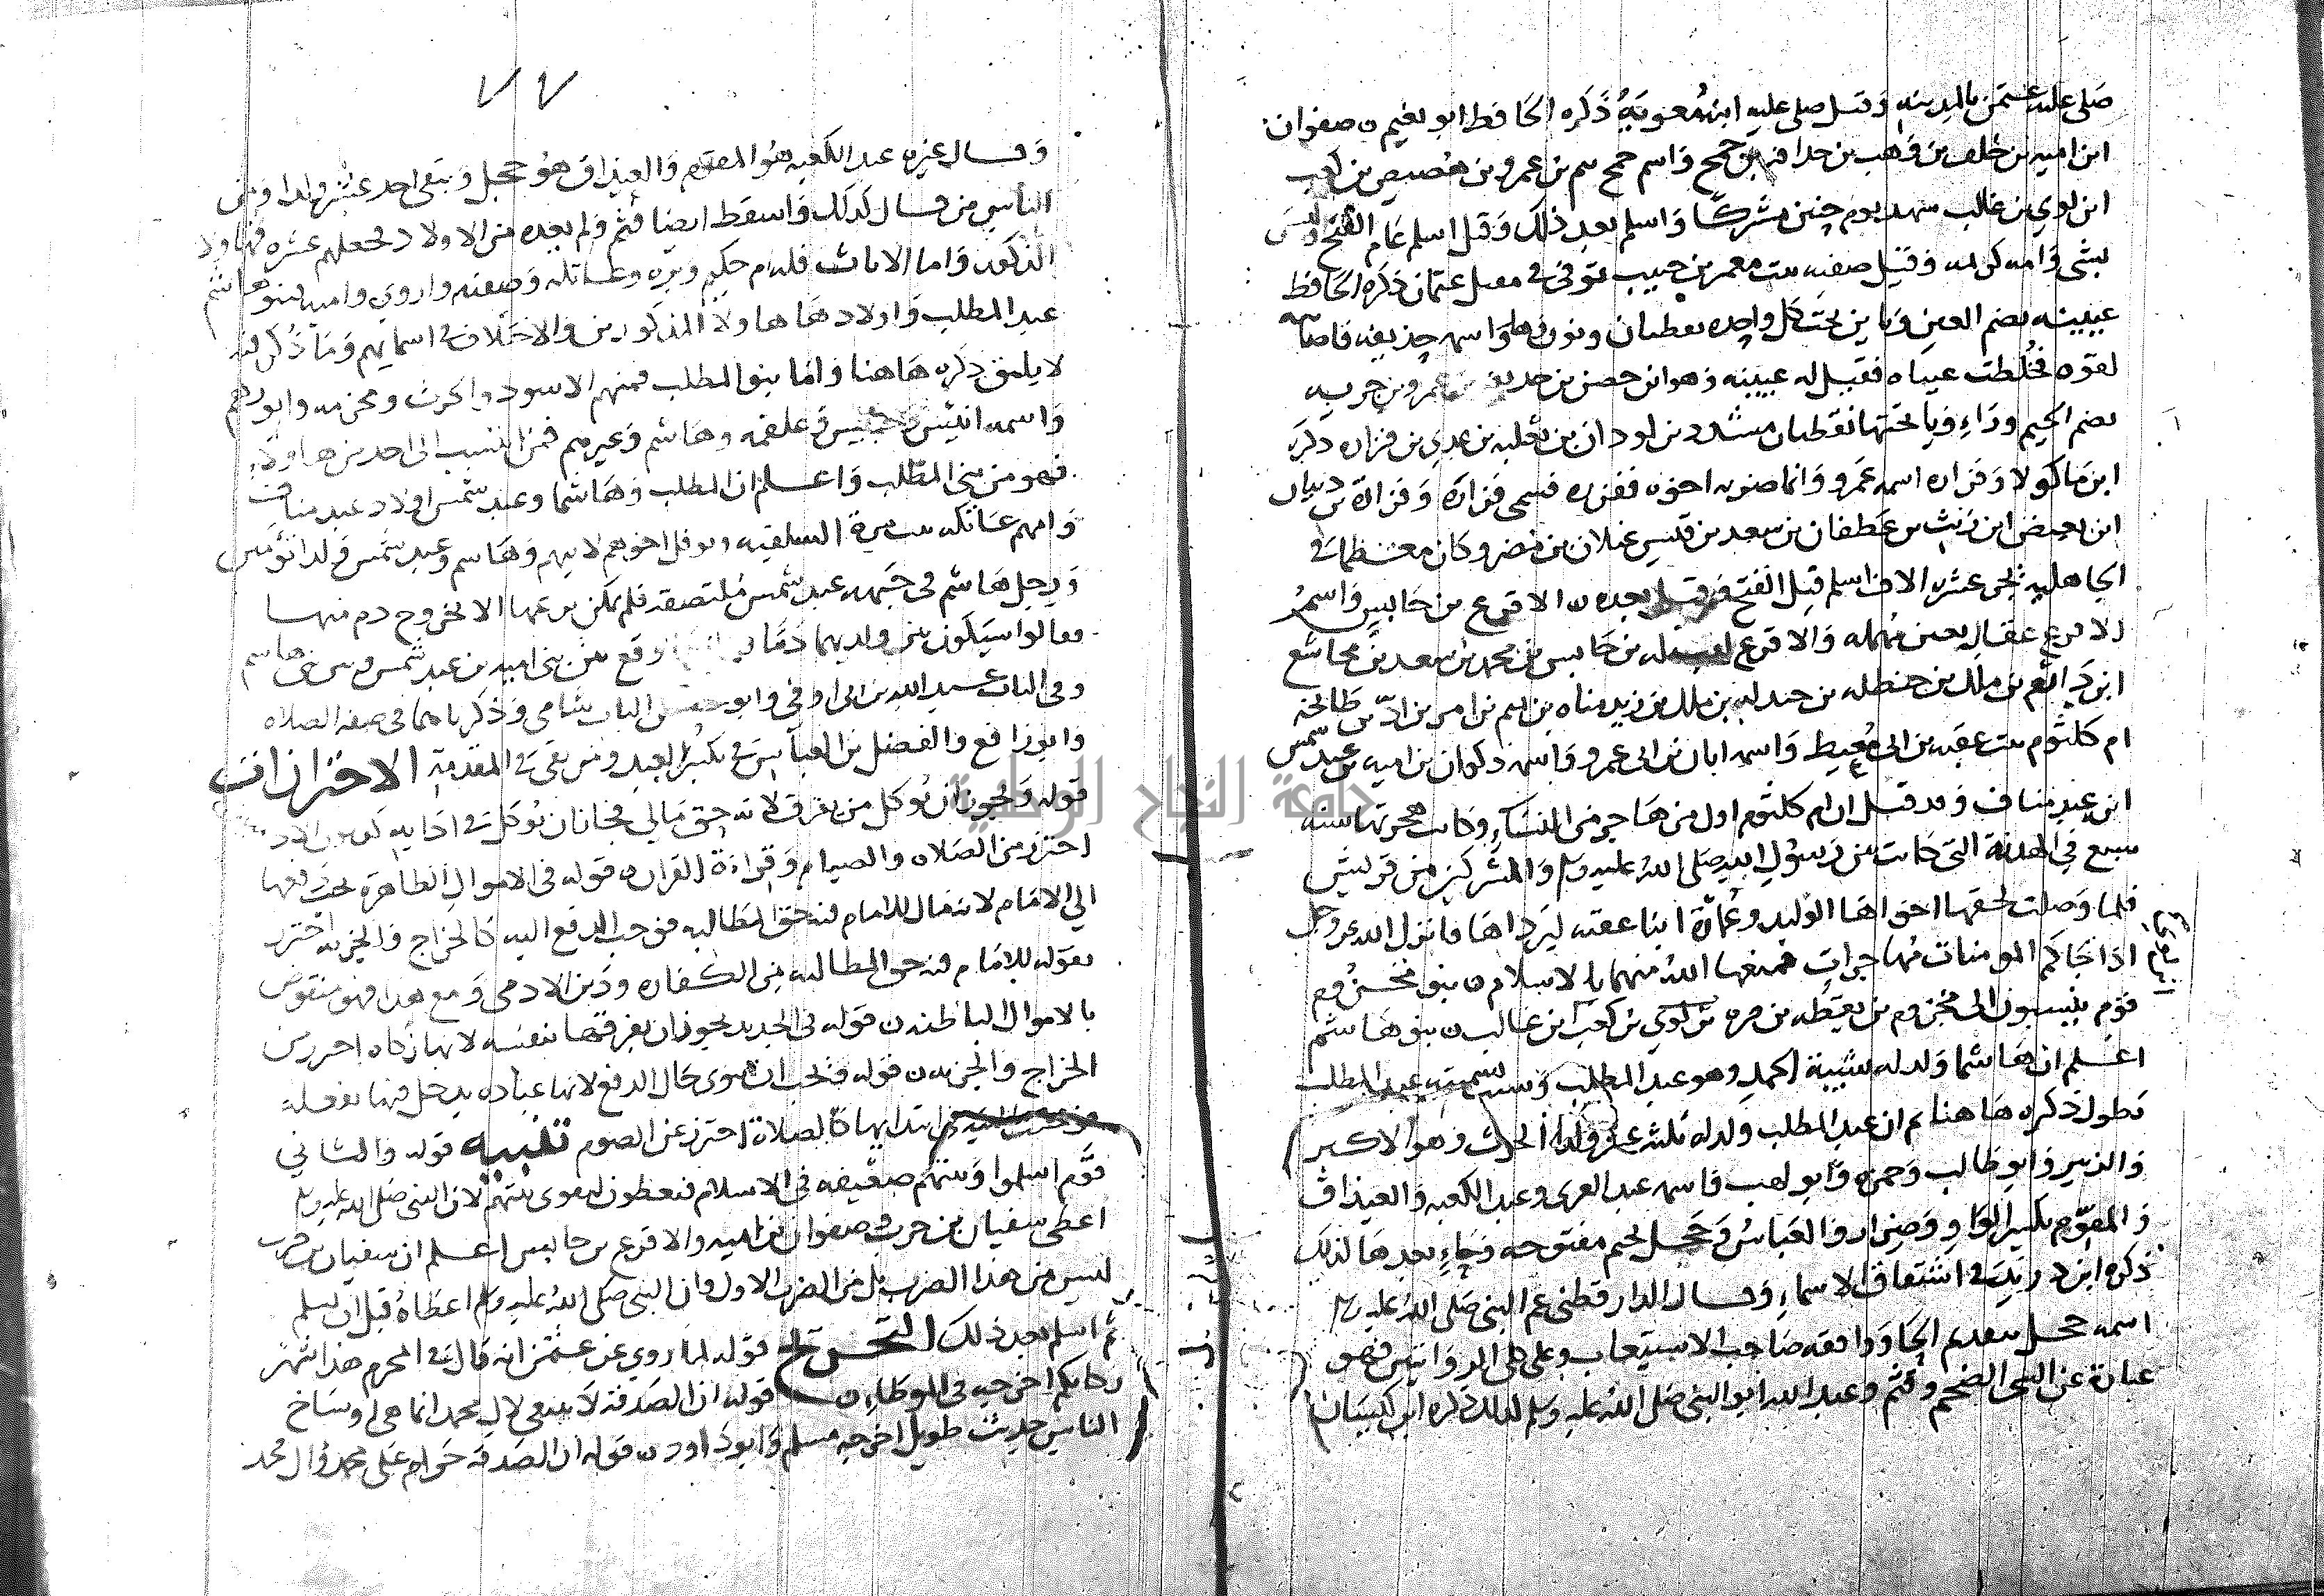 صلى عليه عثمن بالمدينه وقيل صلى عليه ابنه معوية ذكره الحافظ ابو نعيم ن صفوان
ابن اميه بن خلف بن وهب بن حذافه بن جمح واسم جمح تيم بن عمرو بن هصيص بن كعب
ابن لوي بن غالب شهد يوم حنين مشركا واسلم بعد ذلك وقيل اسلم عام الفتح وليس
بشى وامه كريمه وقيل صفيه بنت معمر بن حبيب توفى فى مقتل عثمان ذكره الحافظ
عيينه بضم العين وياين تحت كل واحده نقطتان ونون وها واسمه حذيفه فاصابته
لقوه فخلطت عيناه فقيل له عيينه وهو ابن حصن بن حذيفه بن عمرو بن جويه
بضم الجيم وواو ويا تحتها نقطتان مشدد بن لوذان بن ثعلبه بن عدي بن فزاره ذكره
ابن ماكولا وفزاره اسمه عمرو وانما ضربه اخوه ففزره فسمى فزارة وفزارة بن ذبيان
ابن بغيض ابن ريث بن غطفان بن سعد بن قيس عيلان بن مضر وكان معظما فى
الجاهليه عشره الاف اسلم قبل الفتح وقيل بعده ن الاقرع بن حابس واسم
الاقرع عقال بعين مهمله والاقرع لقب له بن حابس بن محمد بن سعد بن مجاشع
ابن دارم بن ملك بن حنظله بن ملك بن زيد مناه بن تميم بن مر بن اد بن طابخه
ام كلثوم بنت عقبه بن ابى معيط واسمه ابان بن ابى عمرو واسمه ذكوان بن اميه بن عبد شمس
ابن عبد مناف وقد قيل ان ام كلثوم اول من هاجر من النساء وكانت هجرتها سنه
سبع فى الهدنة التى كانت بين رسول الله صلى الله عليه وسلم والمشركين من قريش
فلما وصلت لحقها اخواها الوليد وعمارة ابنا عقبه ليرداها فانزل الله عز وجل
اذا جاكم المومنات مهاجرات فمنعها الله منهما بالاسلام ن بنو مخزوم
قوم ينسبون الى مخزوم بن يقظه بن مره بن لوي بن كعب بن غالب ن بنو هاشم
اعلم ان هاشما ولد له شيبة الحمد وهو عبد المطلب وسبب تسميته عبد المطلب
تطول ذكره هاهنا ثم ان عبد المطلب ولد له ثلثه عشر ولدا الحرث وهو الاكبر
والزبير وابو طالب وحمزه وابو لهب واسمه عبد العزى وعبد الكعبه والغيداق
والمقوم بكسر الواو وضرار والعباس وحجل بجيم مفتوحه وحاء بعدها كذلك
ذكره ابن دريد فى اشتقاق الاسماء وقال الدارقطنى عم النبى صلى الله عليه وسلم
اسمه حجل بتقديم الحا ووافقه صاحب الاستيعاب وعلى كلى الروايتين فهو
عبارة عن الشى الضخم وقثم وعبد الله ابو النبى صلى الله عليه وسلم كذلك ذكره ابن كيسان
٧٧
وقال غيره عبد الكعبه هو المقوم والغيداق هو حجل وبقى احد عشر ولدا ومن
الناس من قال كذلك واسقط ايضا قثم ولم يعده من الاولاد فجعلهم عشره فهاولا
الذكور واما الاناث فله ام حكيم وبره وعاتكه وصفيه واروى واميه فبنو هاشم
عبد المطلب واولاد هاها ولا المذكورين والاختلاف فى اسمايهم وما ذكرته
لا يليق ذكره هاهنا واما بنو المطلب فمنهم الاسود والحرث ومخرمه وابو رهم
واسمه انيس وعلقمه وهاشم وغيرهم فمن انتسب الى احد من هاولاء
فهو من بنى المطلب واعلم ان المطلب وهاشما وعبد شمس اولاد عبد مناف
وامهم عاتكه بنت مرة السلميه ونوفل اخوهم لابيهم وهاشم وعبد شمس ولدا توءمين
ورجل هاشم فى جبهه عبد شمس ملتصقه فلم يمكن نزعها الا بخروج دم منها
فقالوا سيكون بين ولديهما دما وقع بين بنى اميه بن عبد شمس وبين بنى هاشم
وفى الباب عبد الله بن ابى اوفى وابو حفص الباب شامى وذكرناهما فى صفه الصلاه
وابو رافع والفضل بن العباس فى تكبير العيد ومن بقى فى المقدمة الاحترازات
قوله ويجوز ان يوكل من يفرق لانه حق مالي فجاز ان يوكل فى ادايه كديون الادميين
احترز من الصلاه والصيام وقراءة القران ن قوله فى الاموال الظاهرة يجب دفعها
الى الامام لانه مال للامام فيه حق المطالبه فوجب الدفع اليه كالخراج والجزيه احترز
بقوله للامام فيه حق المطالبه من الكفاره ودين الادمى ومع هذا فهو منقوض
بالاموال الباطنه ن قوله فى الجديد يجوز ان يفرقها بنفسه لانها زكاه احترز من
الخراج والجزيه ن قوله فيجب ان ينوى حال الدفع لانها عباده يدخل فيها بفعله
فوجبت النيه فى ابتدايها كالصلاة احترز عن الصوم تنبيه قوله والثاني
قوم اسلموا ونيتهم ضعيفه فى الاسلام فيعطون لتقوى نيتهم لان النبى صلى الله عليه وسلم
اعطى سفيان بن حرب وصفوان بن اميه والاقرع بن حابس اعلم ان سفيان بن حرب
ليس من هذا الضرب بل من الضرب الاول فان النبى صلى الله عليه وسلم اعطاه قبل ان يسلم
ثم اسلم بعد ذلك التخريج قوله لما روي عن عثمن انه قال فى المحرم هذا شهر
زكاتكم اخرجه فى الموطاء ن قوله ان الصدقه لا تنبغى لال محمد انما هى اوساخ
الناس حديث طويل اخرجه مسلم وابو داود ن قوله ان الصدقه حرام على محمد وال محمد
جامعة النجاح الوطنية